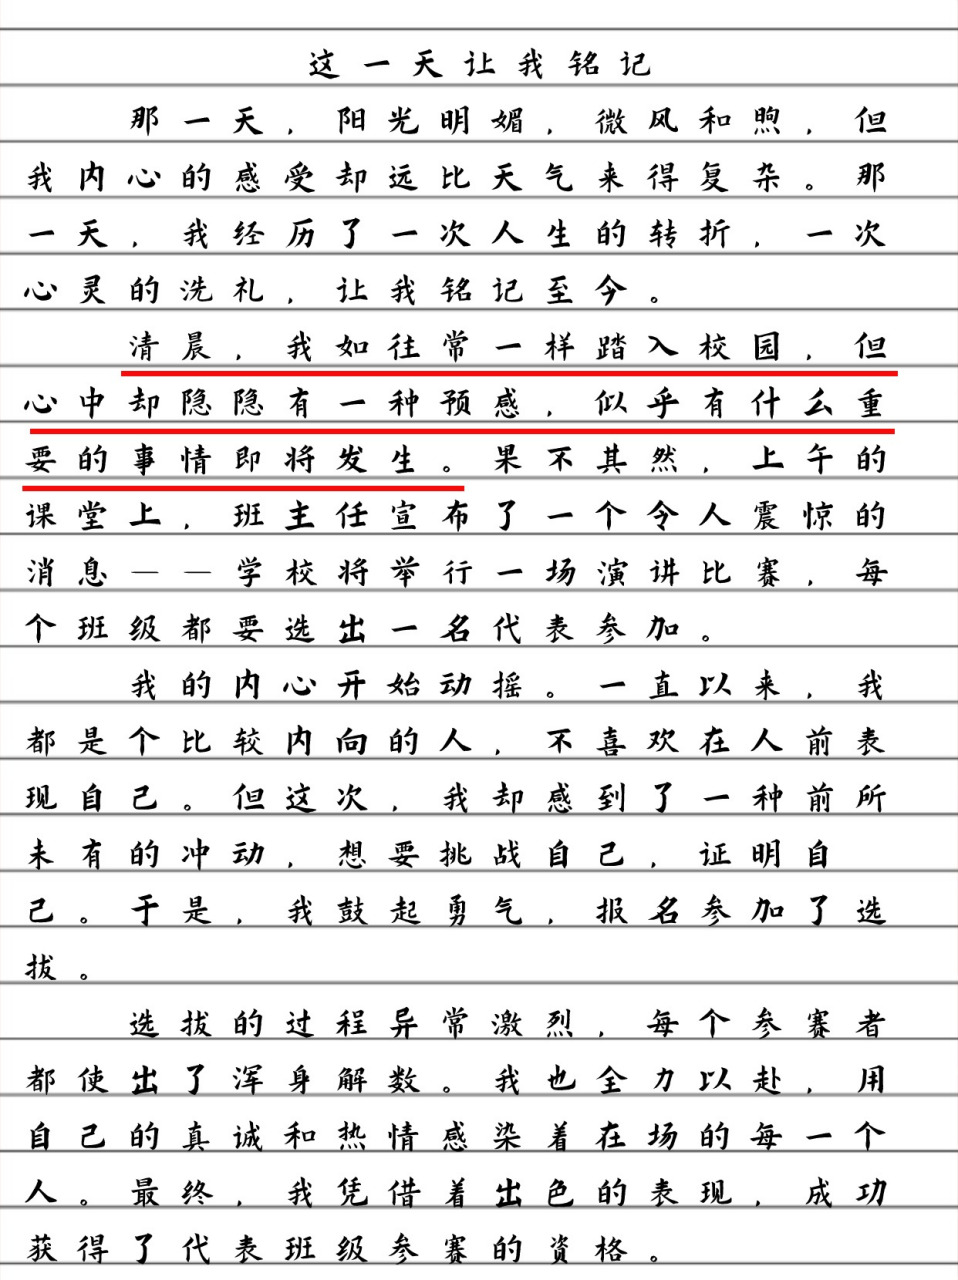 这一天让我铭记
那一天，阳光明媚，微风和煦，但
我内心的感受却远比天气来得复杂。那
一天，我经历了一次人生的转折，一次
心灵的洗礼，让我铭记至今。
清晨，我如往常一样踏入校园，但
心中却隐隐有一种预感，似乎有什么重
要的事情即将发生。果不其然，上午的
课堂上，班主任宣布了一个令人震惊的
消息——学校将举行一场演讲比赛，每
个班级都要选出一名代表参加。
我的内心开始动摇。一直以来，我
都是个比较内向的人，不喜欢在人前表
现自己。但这次，我却感到了一种前所
未有的冲动，想要挑战自己，证明自
己。于是，我鼓起勇气，报名参加了选
拔。
选拔的过程异常激烈，每个参赛者
都使出了浑身解数。我也全力以赴，用
自己的真诚和热情感染着在场的每一个
人。最终，我凭借着出色的表现，成功
获得了代表班级参赛的资格。